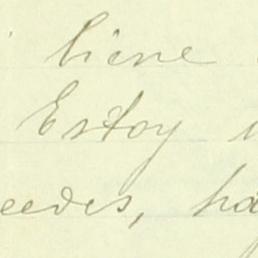 tiene
Estoy
eedes, ha